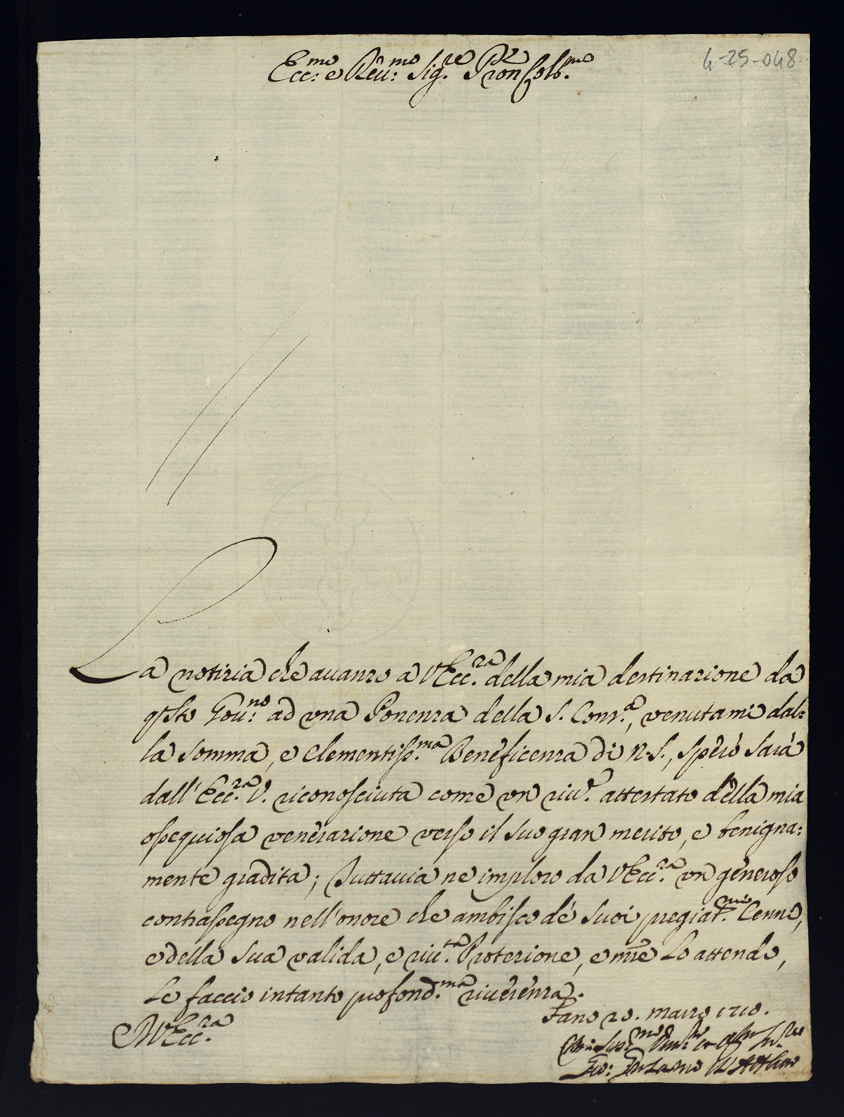 Ecc.mo e Reu.mo Sig.re P̃ron Col.mo
4-25-048
La notizia che auanzo a V Ecc.ra della mia destinazione da
q̃sto Gou.no ad vna Ponenza della S. Cons.a, venutami dal=
la somma, e Clementiss.ma Beneficenza di N.S., spero sarà
dall'Ecc.ra V. riconosciuta come vn riu.e attestato della mia
ossequiosa venerazione verso il suo gran merito, e benigna=
mente gradita; Tuttauia ne imploro da V Ecc.ra vn generoso
contrassegno nell'onore che ambisco de' suoi pregiat.mi Cenni,
e della sua valida, e riu.ta Protezione, e m̃re Lo attendo,
Le faccio intanto profond.ma riuerenza.
Fano 20. marzo 1710.
V Ecc.ra